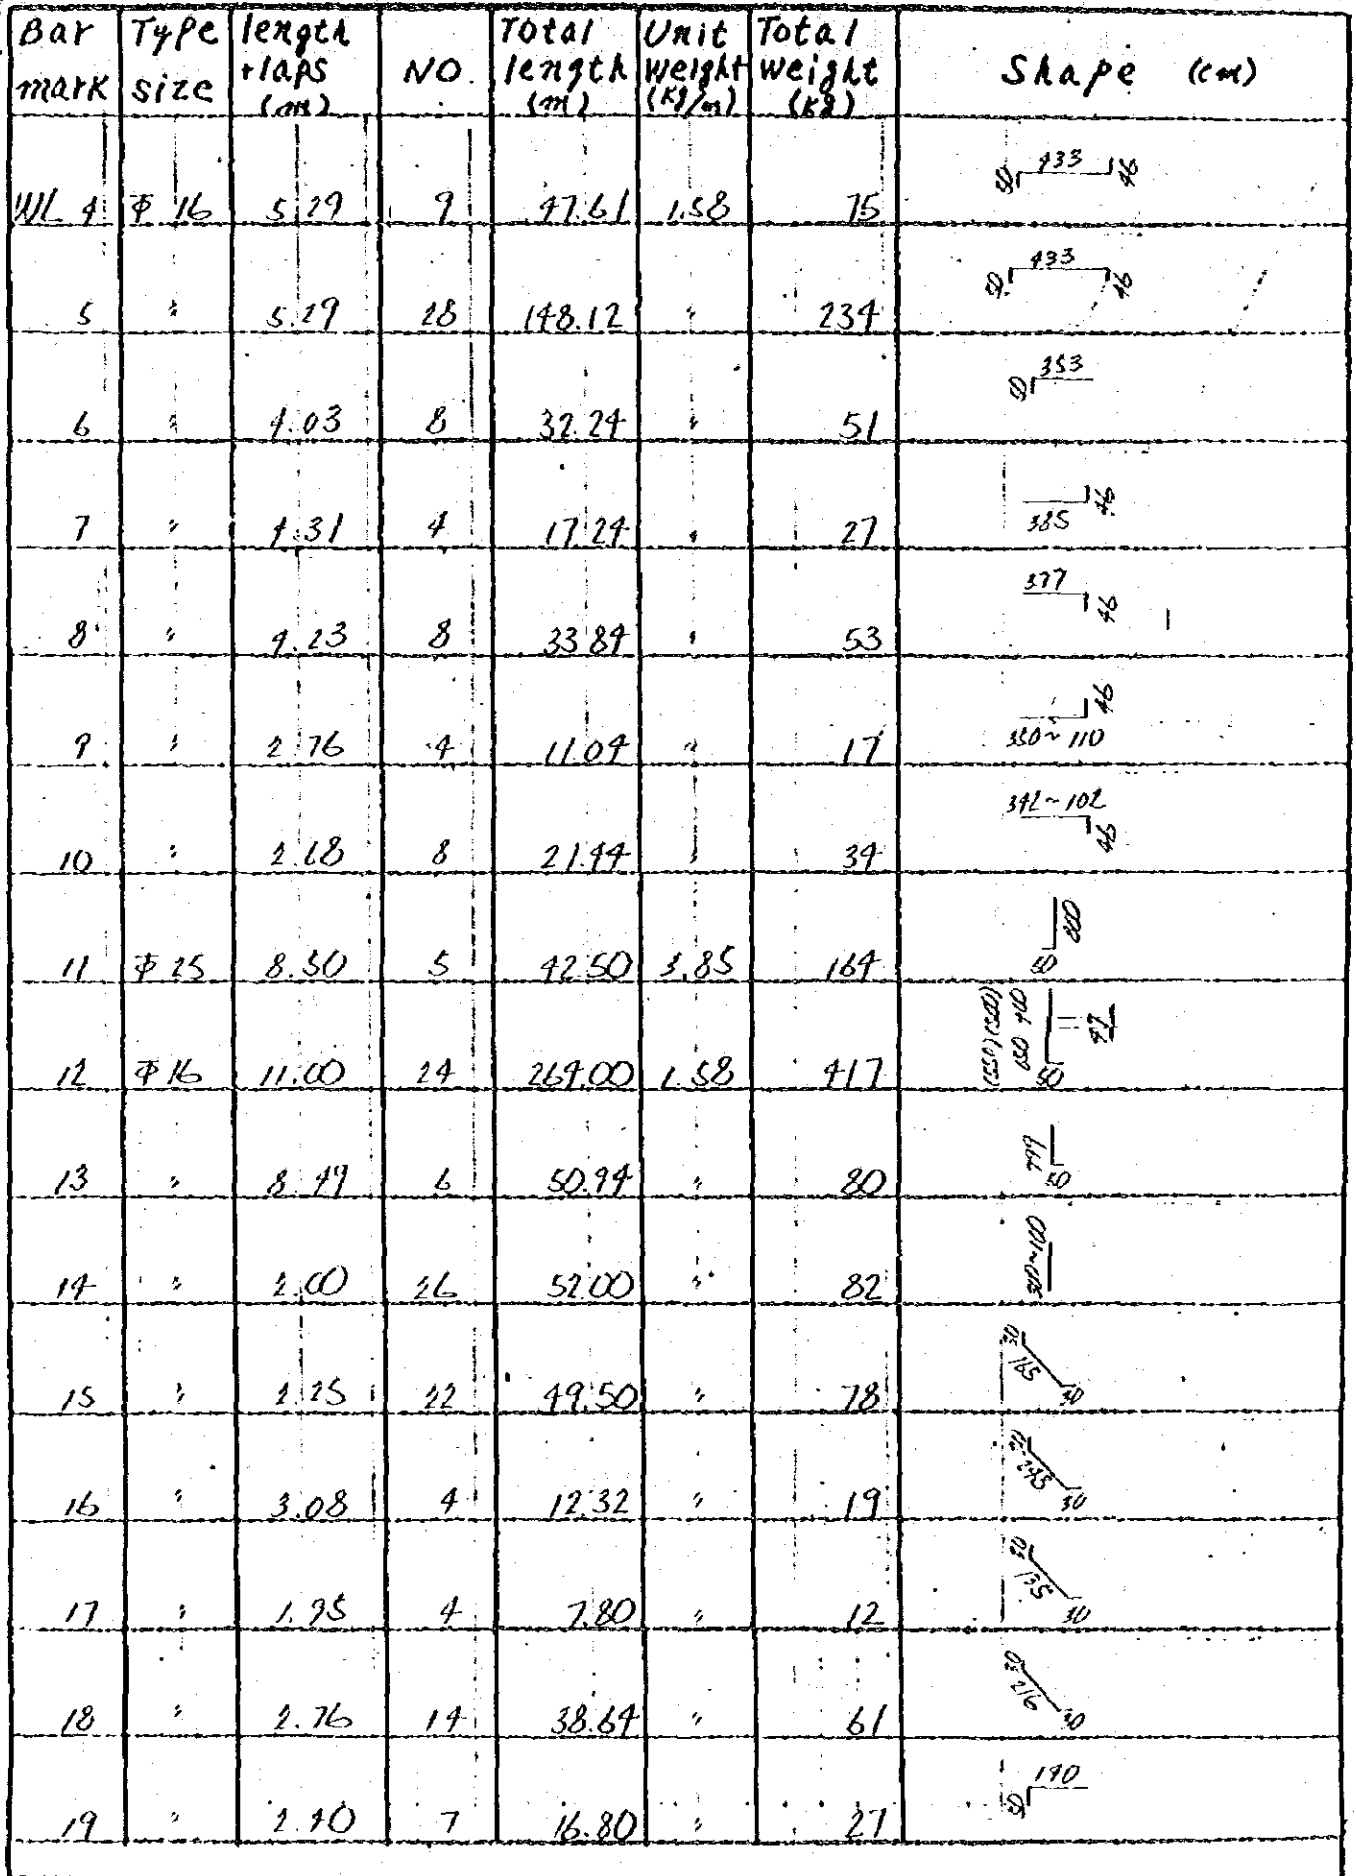 Bar mark Type size length +laps (m) NO. Total length (m) Unit weight (kg/m) Total weight (kg) Shape (cm)
WL 4 Φ 16 5.29 9 47.61 1.58 75 50 433 46
5 〃 5.29 28 148.12 〃 234 50 433 46
6 〃 4.03 8 32.24 〃 51 50 353
7 〃 4.31 4 17.24 〃 27 385 46
8 〃 4.23 8 33.84 〃 53 377 46
9 〃 2.76 4 11.04 〃 17 350~110 46
10 〃 2.68 8 21.44 〃 34 342~102 46
11 Φ 25 8.50 5 42.50 3.85 164 50 800
12 Φ 16 11.00 24 264.00 1.58 417 650 400 50 47
13 〃 8.49 6 50.94 〃 80 799 50
14 〃 2.00 26 52.00 〃 82 300~100
15 〃 2.25 22 49.50 〃 78 30 165 30
16 〃 3.08 4 12.32 〃 19 30 248 30
17 〃 1.95 4 7.80 〃 12 30 135 30
18 〃 2.76 14 38.64 〃 61 30 216 30
19 〃 2.40 7 16.80 〃 27 50 190